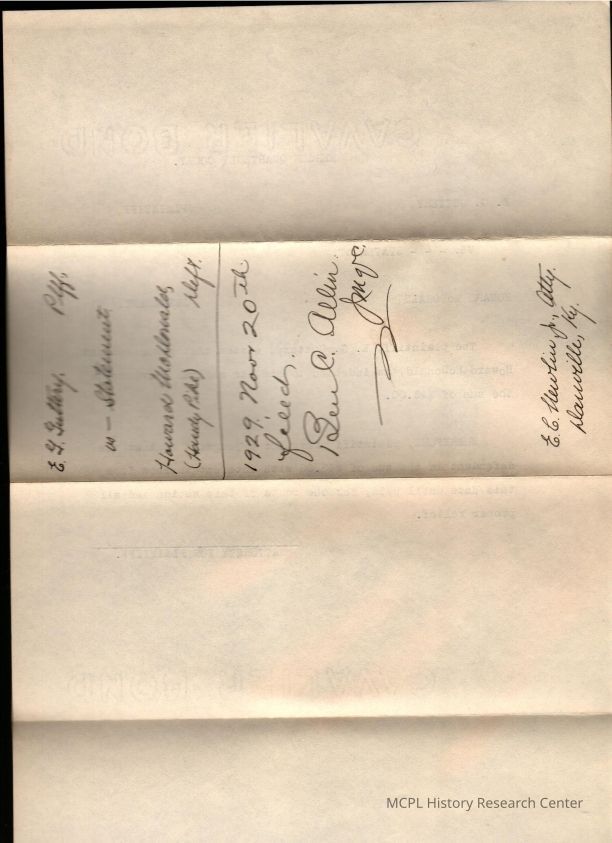 E. G. Guttery. Plff.
vs — Statement
Howard McDonald, Deft.
(Handy Pike)
1929. Novr 20th
filed,
Ben C. Allin.
JMQC.
E. C. Newlin Jr., Atty.
Danville, Ky.
MCPL History Research Center